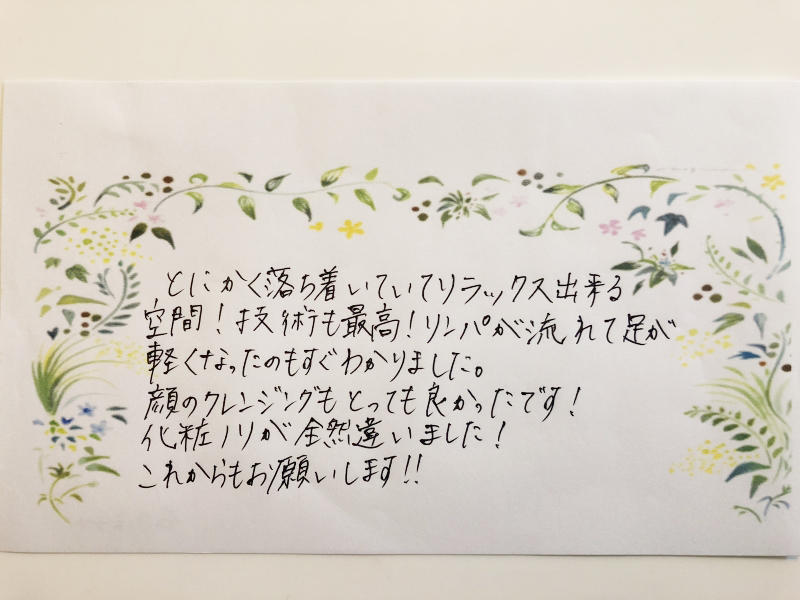 とにかく落ち着いていてリラックス出来る
空間！技術も最高！リンパが流れて足が
軽くなったのもすぐわかりました。
顔のクレンジングもとっても良かったです！
化粧ノリが全然違いました！
これからもお願いします!!